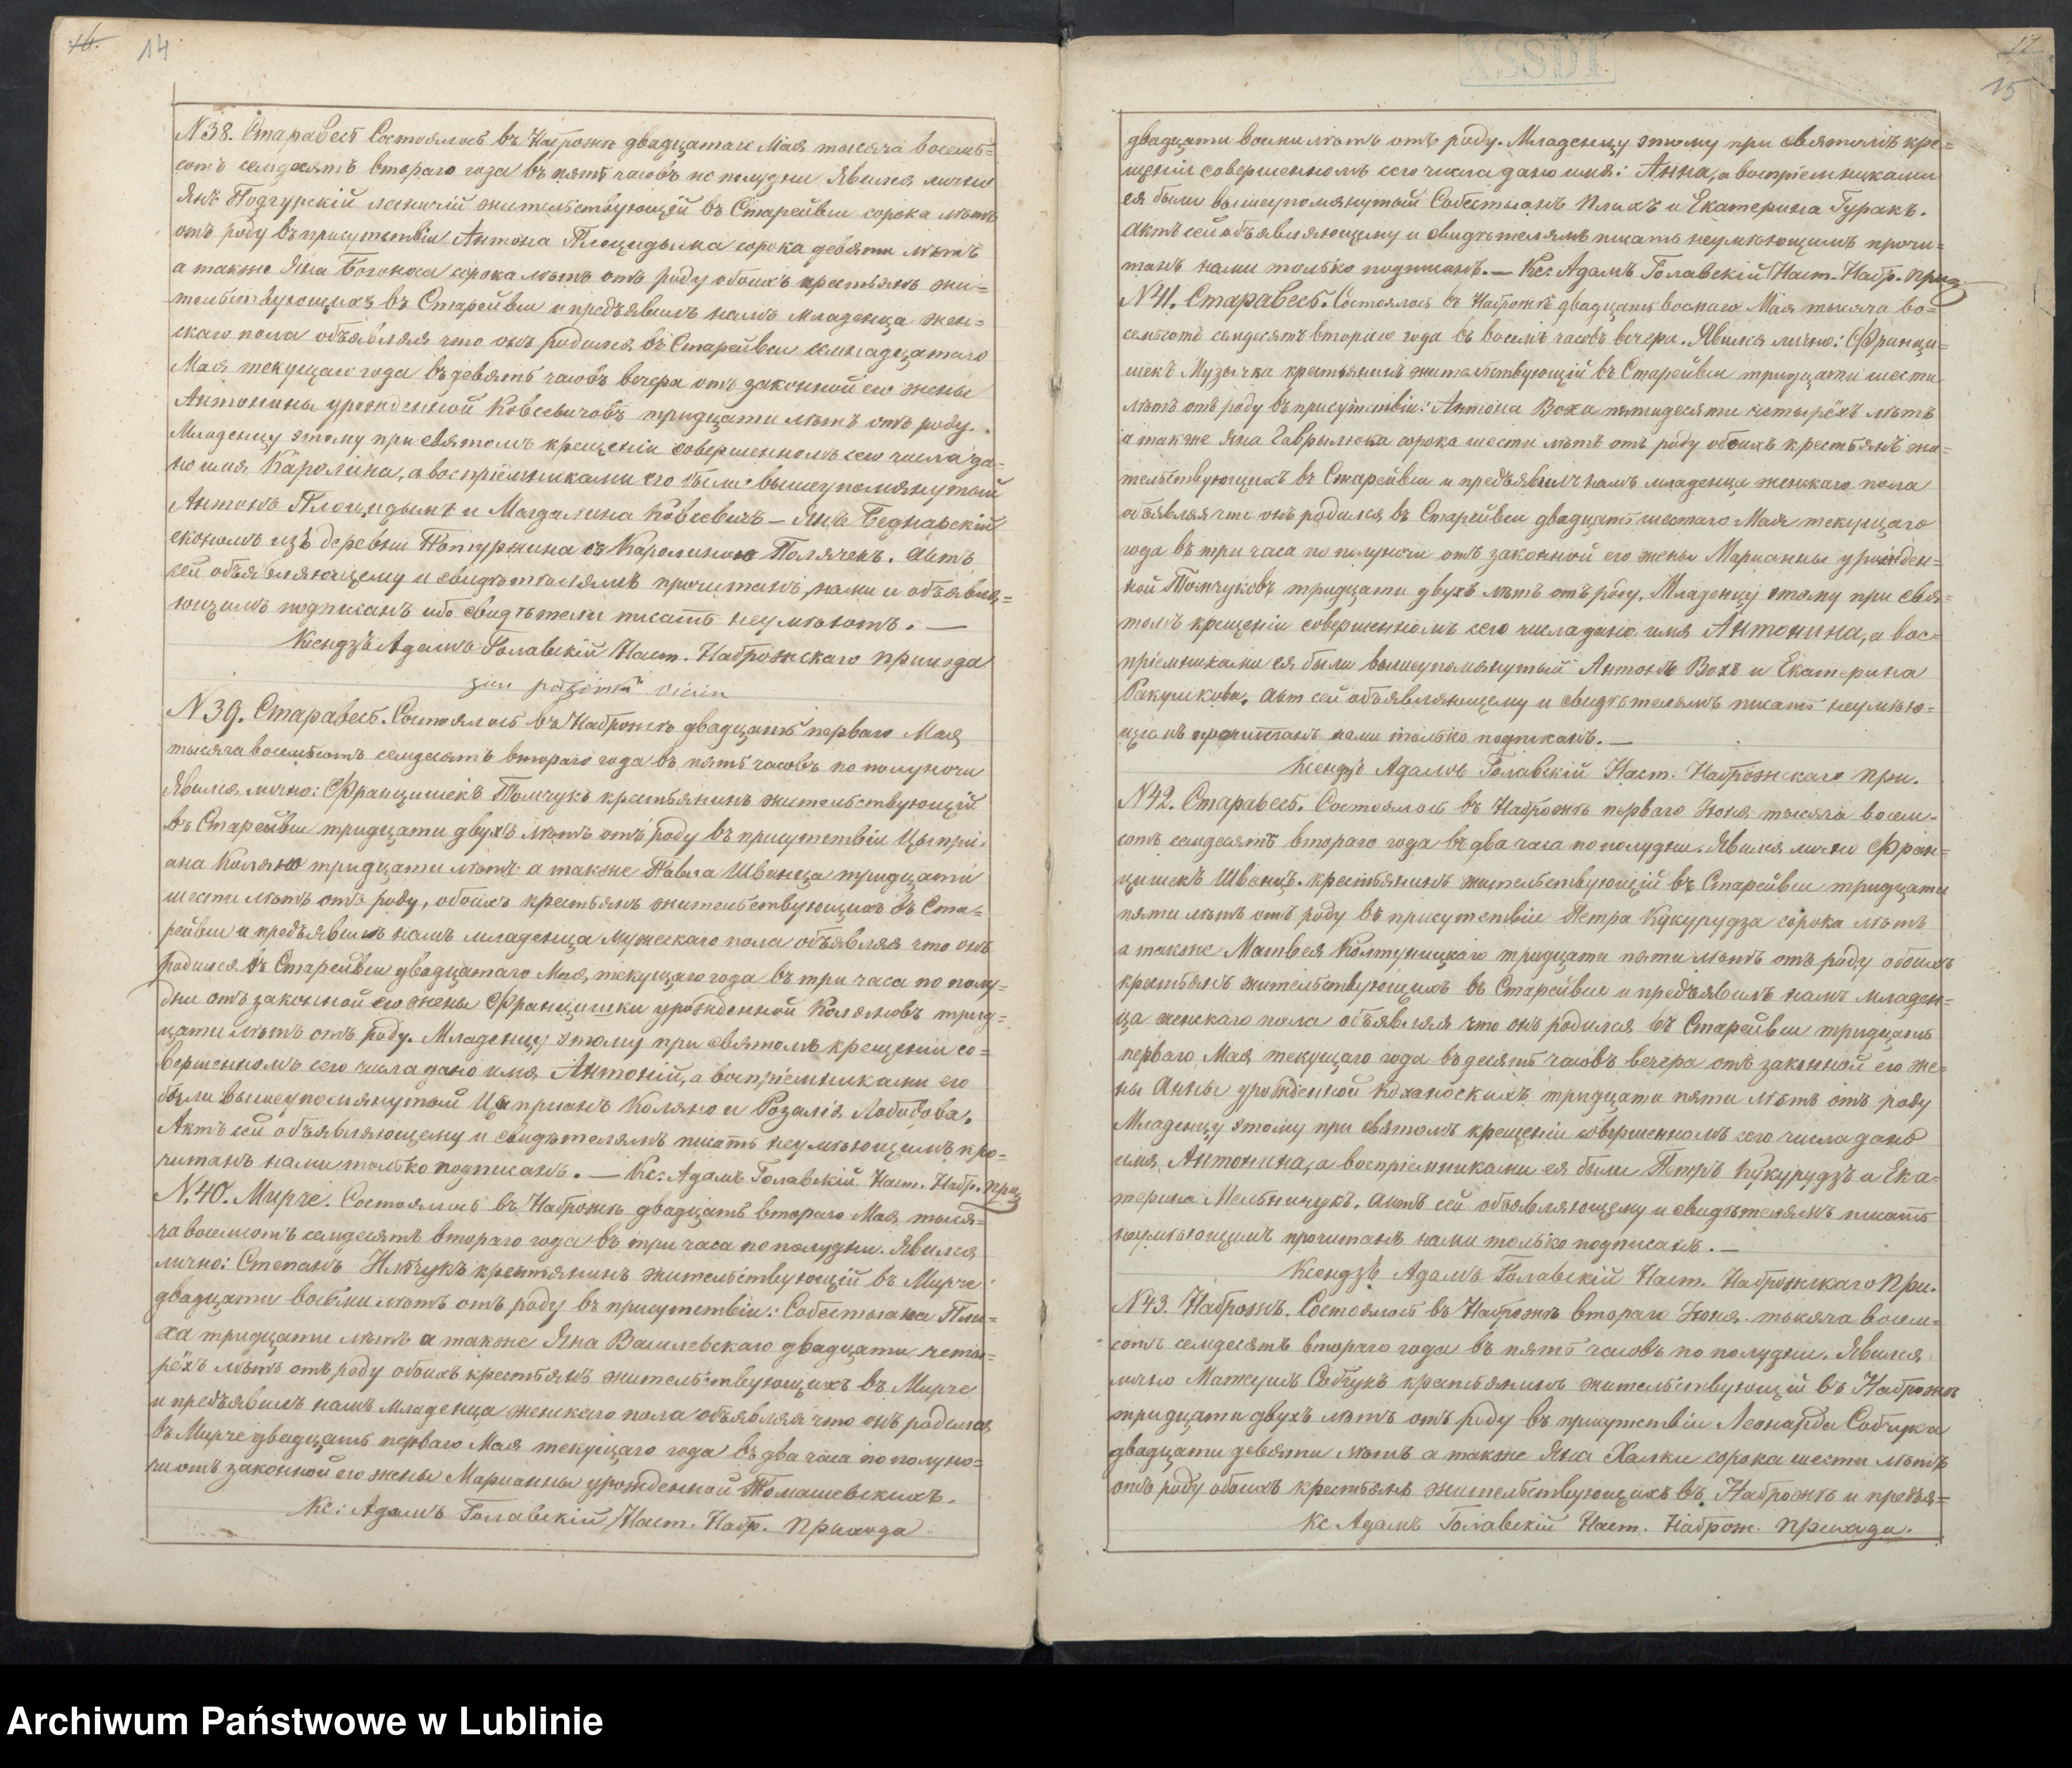 16. 14
N 38. Старавесь Состоялось въ Наброжѣ двадцатаго Мая тысяча восемь=
сотъ семдесятъ втораго года въ пять часовъ по полудни Явился лично
Янъ Подгурскій лесничій жительствующій въ Старейвси сорока лѣтъ
отъ роду въ присутствіи Антона Плоцидыма сорока девяти лѣтъ
а также Яна сорока лѣтъ отъ роду обоихъ крестьянъ жи=
тельствующихъ въ Старейвси и предъявилъ намъ младенца жен=
скаго пола объявляя что онъ родился въ Старейвси семнадцатаго
Мая текущаго года въ девять часовъ вечера отъ законной его жены
Антонины урожденной Ковсевичовъ тридцати лѣтъ отъ роду.
Младенцу этому при святомъ крещеніи совершенномъ сего числа да=
но имя Каролина, а воспріемниками его были вышеупомянутый
Антонъ Плоцидымъ и Магдалина Ковсевичъ — Янъ Беднарскій
економъ изъ деревни Потуржина съ Каролиною Полячекъ. Актъ
сей объявляющему и свидѣтелямъ прочитанъ, нами и объявля=
ющимъ подписанъ ибо свидѣтели писать неумѣютъ. —
Ксендзъ Адамъ Голавскій Наст. Наброжскаго прихода
N 39. Старавесь. Состоялось въ Наброжѣ двадцать перваго Мая
тысяча восемьсотъ семдесятъ втораго года въ пять часовъ по полуночи
Явился лично: Францишекъ Томчукъ крестьянинъ жительствующій
въ Старейвси тридцати двухъ лѣтъ отъ роду въ присутствіи Цыпри=
ана Коляно тридцати лѣтъ а также Павла Шванца тридцати
шести лѣтъ отъ роду, обоихъ крестьянъ жительствующихъ въ Ста=
рейвси и предъявилъ намъ младенца мужескаго пола объявляя что онъ
родился въ Старейвси двадцатаго Мая, текущаго года въ три часа по полу=
дни отъ законной его жены Францишки урожденной Коляновъ трид=
цати лѣтъ отъ роду. Младенцу этому при святомъ крещеніи со=
вершенномъ сего числа дано имя Антоній, а воспріемниками его
были вышеупомянутый Цыпріанъ Коляно и Розалія Лободова.
Актъ сей объявляющему и свидѣтелямъ писать неумѣющимъ про=
читанъ нами только подписанъ. — Кс: Адамъ Голавскій Наст. Набр. прих
N. 40. Мирче. Состоялось въ Наброжѣ двадцать втораго Мая, тыся=
ча восемсотъ семдесятъ втораго года въ три часа по полудни. Явился
лично: Степанъ Ильчукъ крестьянинъ жительствующій въ Мирче
двадцати восьми лѣтъ отъ роду въ присутствіи: Собестыана Пли=
ха тридцати лѣтъ а также Яна Василевскаго двадцати четы=
рёхъ лѣтъ отъ роду обоихъ крестьянъ жительствующихъ въ Мирче
и предъявилъ намъ младенца женскаго пола объявляя что онъ родился
въ Мирче двадцать перваго Мая текущаго года въ два часа по полуно=
чи отъ законной его жены Марианны урожденной Томашевскихъ.
Кс: Адамъ Голавскій Наст. Набр. прихода
XSSDT
17 15
двадцати восми лѣтъ отъ роду. Младенцу этому при святомъ кре=
щеніи совершенномъ сего числа дано имя: Анна, а воспріемниками
ея были вышеупомянутый Собестыанъ Плихъ и Екатерина Гуракъ.
Актъ сей объявляющему и свидѣтелямъ писать неумѣющимъ прочи=
танъ нами только подписанъ. — Кс: Адамъ Голавскій Наст. Набр. прих
N 41. Старавесь. Состоялось въ Наброжѣ двадцать восмаго Мая тысяча во=
семьсотъ семдесятъ втораго года въ восемь часовъ вечера. Явился лично: Франци=
шекъ Музычка крестьянинъ жительствующій въ Старейвси тридцати шести
лѣтъ отъ роду въ присутствіи: Антона Воха пятидесяти четырёхъ лѣтъ
а также Яна Гаврылюка сорока шести лѣтъ отъ роду обоихъ крестьянъ жи=
тельствующихъ въ Старейвси и предъявилъ намъ младенца женскаго пола
объявляя что онъ родился въ Старейвси двадцать шестаго Мая текущаго
года въ три часа по полуночи отъ законной его жены Марианны урожден=
ной Томчуковъ тридцати двухъ лѣтъ отъ роду, Младенцу этому при свя=
томъ крещеніи совершенномъ сего числа дано имя Антонина, а вос=
пріемниками ея были вышеупомянутый Антонъ Вохъ и Екатерина
Ракушкова. Актъ сей объявляющему и свидѣтелямъ писать неумѣю=
щимъ прочитанъ нами только подписанъ. —
Ксендзъ Адамъ Голавскій Наст. Наброжскаго при.
N 42. Старавесь. Состоялось въ Наброжѣ перваго Июня тысяча восем=
сотъ семдесятъ втораго года въ два часа по полудни. Явился лично Фран=
цишекъ Шванцъ. крестьянинъ жительствующій въ Старейвси тридцати
пяти лѣтъ отъ роду въ присутствіи Петра Кукурудза сорока лѣтъ
а также Матвея Колтуницкаго тридцати пяти лѣтъ отъ роду обоихъ
крестьянъ жительствующихъ въ Старейвси и предъявилъ намъ младен=
ца женскаго пола объявляя что онъ родился въ Старейвси тридцать
перваго Мая текущаго года въ десять часовъ вечера отъ законной его же=
ны Анны урожденной Коханоскихъ тридцати пяти лѣтъ отъ роду
Младенцу этому при святомъ крещеніи совершенномъ сего числа дано
имя, Антонина, а воспріемниками ея были Петръ Кукурудзъ и Ека=
терина Мельничукъ. Актъ сей объявляющему и свидѣтелямъ писать
неумѣющимъ прочитанъ нами только подписанъ. —
Ксендзъ Адамъ Голавскій Наст. Наброжскаго При.
N 43. Наброжъ. Состоялось въ Наброжѣ втораго Июня тысяча восем=
сотъ семдесятъ втораго года въ пять часовъ по полудни. Явился
лично Матеушъ Собчукъ крестьянинъ жительствующій въ Наброжѣ
тридцати двухъ лѣтъ отъ роду въ присутствіи Леонарда Собчука
двадцати девяти лѣтъ а также Яна Халки сорока шести лѣтъ
отъ роду обоихъ крестьянъ жительствующихъ въ Наброжѣ и предъя=
Кс Адамъ Голавскій Наст. Наброж. прихода.
Archiwum Państwowe w Lublinie